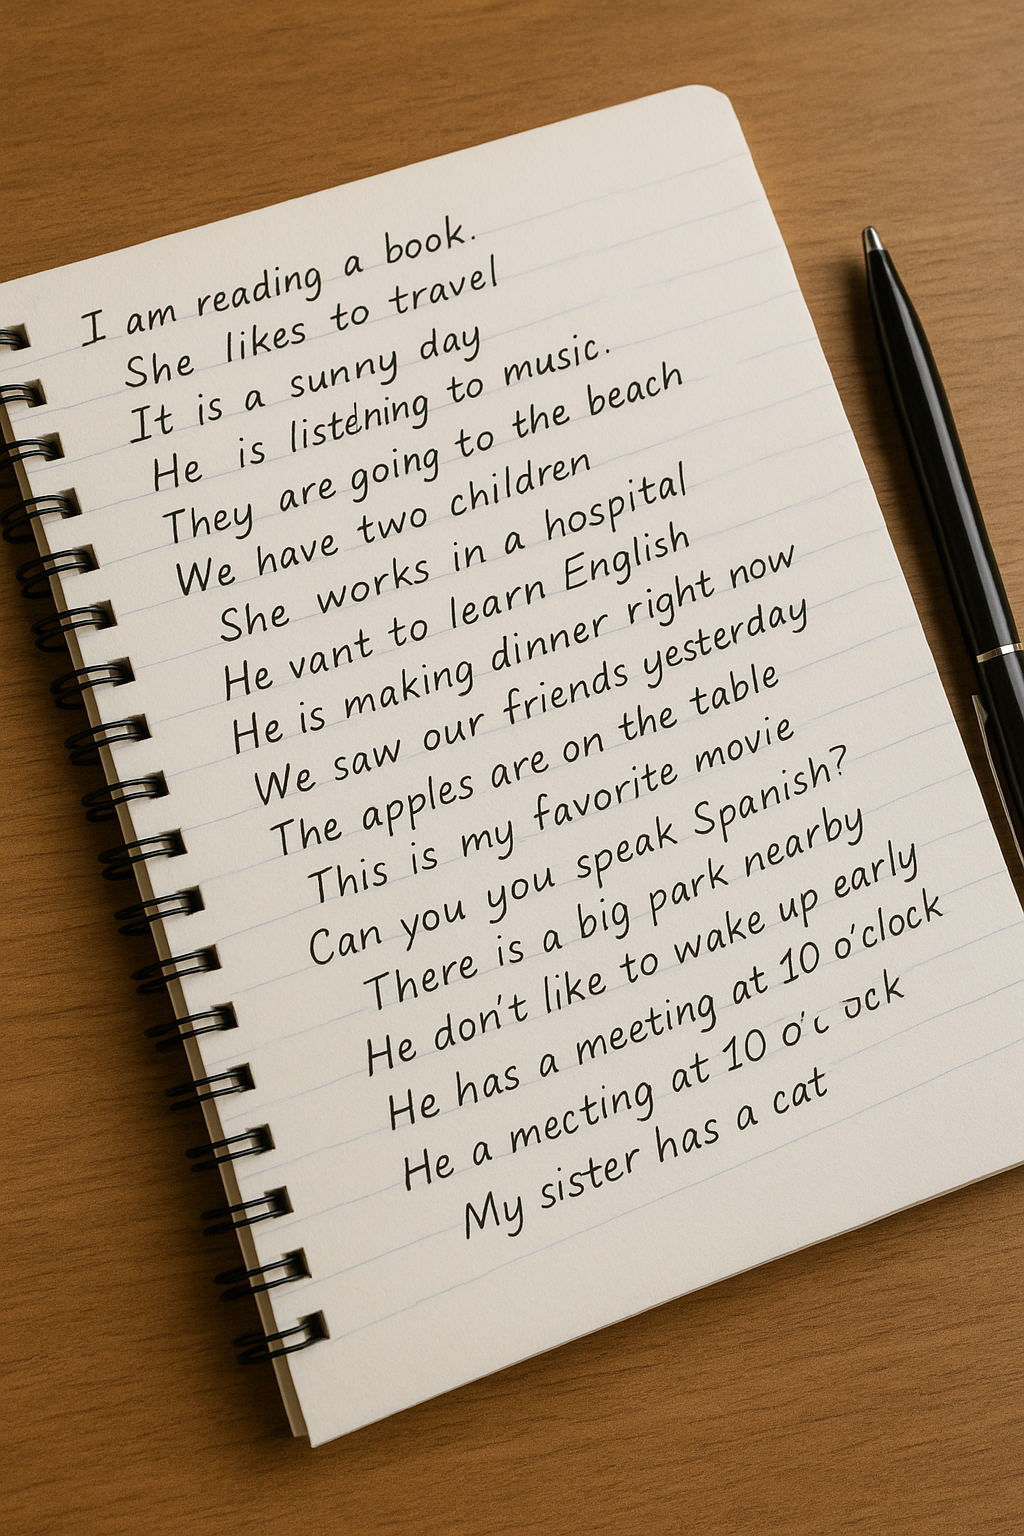 I am reading a book.
She likes to travel
It is a sunny day
He is listening to music.
They are going to the beach
We have two children
She works in a hospital
He vant to learn English
He is making dinner right now
We saw our friends yesterday
The apples are on the table
This is my favorite movie
Can you you speak Spanish?
There is a big park nearby
He don't like to wake up early
He has a meeting at 10 o'clock
He a mecting at 10
My sister has a cat